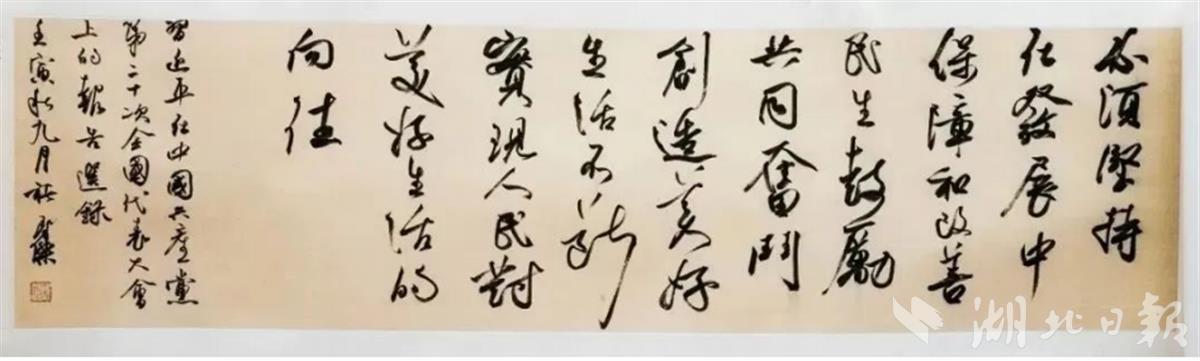 必須堅持
在發展中
保障和改善
民生鼓勵
共同奮鬥
創造美好
生活不斷
實現人民對
美好生活的
向往
習近平在中國共產黨
第二十次全國代表大會
上的報告選錄
壬寅秋九月
湖北日報